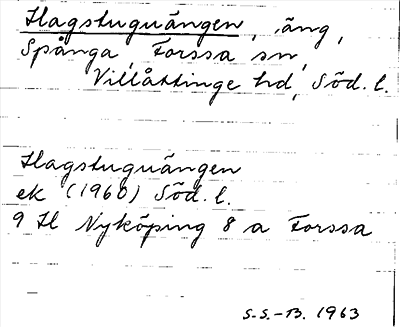 Hagstuguängen, äng,
Spånga, Forssa sn,
Villåttinge hd, Söd. l.
Hagstuguängen
ek (1960) Söd. l.
9 H Nyköping 8 a Forssa
S.S.-B. 1963